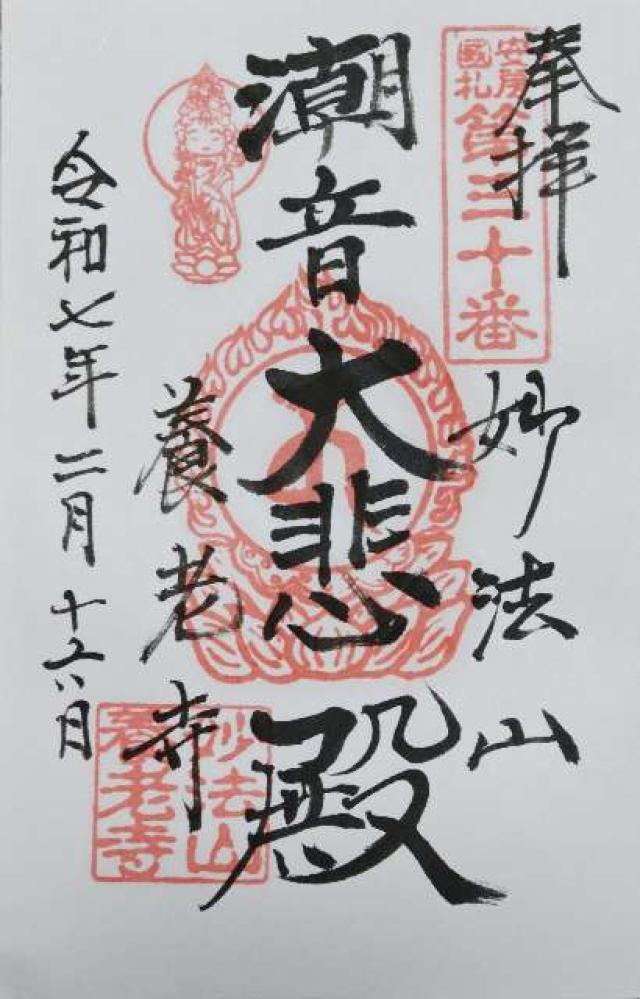 奉拝
安房
國札
第三十番
妙法山
潮音大悲殿
養老寺
令和七年二月十六日
妙法山
養老寺